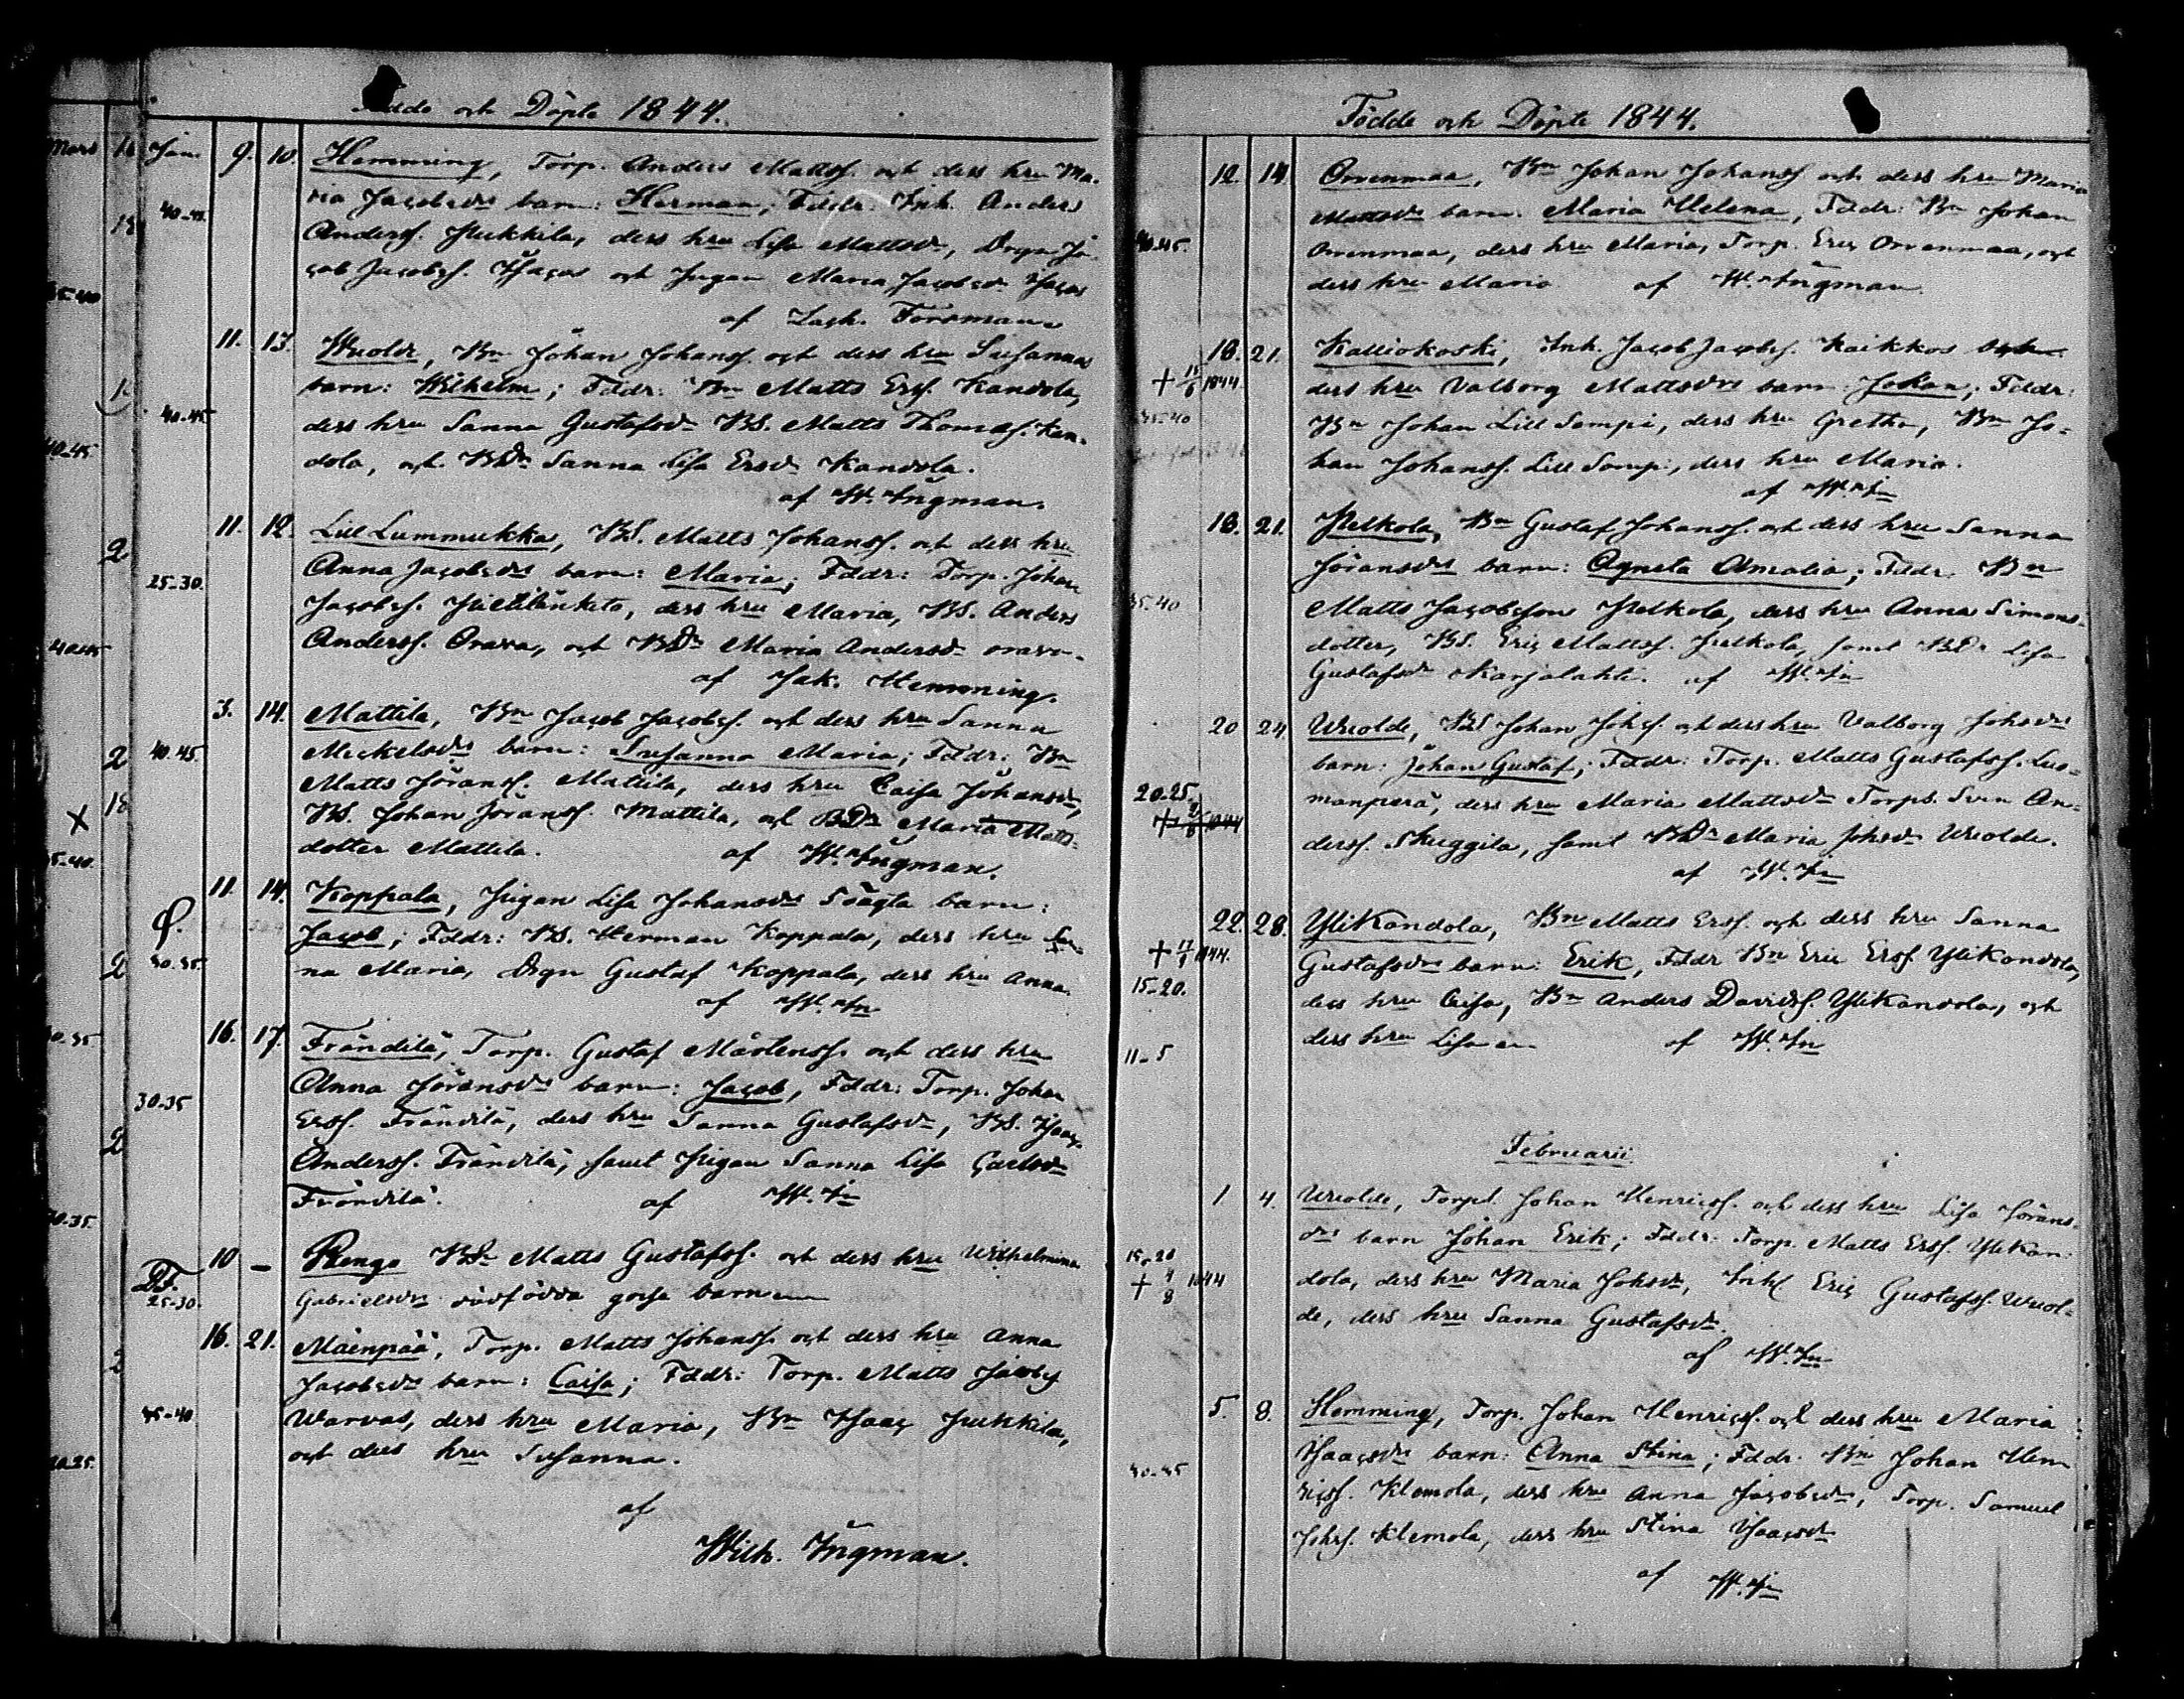 Födde och Döpte 1844.
Jan. 9. 10. Hemming, Torp. Anders Mattsf. och dess hru Ma-
40-45. ria Jacobsdrs barn: Herman; Fddr: Inh. Anders
Andersf. Pukkila, dess hru Lisa Mattsdr, Drgn Ja-
cob Jacobsf. och Pigan Maria Jacobsdr
af Zach. Forsman.
11. 13. Wuolde, Bn Johan Johansf. och dess hru Susannas
barn: Wilhelm; Fddr: Bn Matts Ersf. Kandola,
40-45 dess hru Sanna Gustafsdr BS. Matts Thomasf. Kan-
dola, och BDr Sanna Lisa Ersdr Kandola.
af W. Ingman.
11. 12. Lill Lummukka, BS. Matts Johansf. och dess hru
25-30. Anna Jacobsdrs barn: Maria; Fddr: Torp. Johan
Jacobsf. dess hru Maria, BS. Anders
Andersf. Orava, och BDr Maria Andersdr Orava.
af Jak. Hemming.
3. 14. Mattila, Bn Jacob Jacobsf. och dess hru Sanna
40-45. Mickelsdrs barn: Susanna Maria; Fddr: Bn
Matts Jöransf. Mattila, dess hru Caisa Johansdr,
BS. Johan Jöransf. Mattila, och BDr Maria Matts-
dotter Mattila. af W. Ingman.
11. 14. Koppala, Pigan Lisa Johansdrs oägta barn:
Jacob; Fddr: BS. Herman Koppala, dess hru San-
30-35. na Maria, Drgn Gustaf Koppala, dess hru Anna.
af W. In
16. 17. Frändilä, Torp. Gustaf Mårtensf. och dess hru
30-35 Anna Jöransdrs barn: Jacob, Fddr: Torp. Johan
Ersf. Frändilä, dess hru Sanna Gustafsdr, BS. Isaac
Andersf. Frändilä, samt Pigan Sanna Lisa Carlsdr
Frändilä. af W. In
10 — Rengo Matts Gustafsf. och dess hru Wilhelmina
DF. 25-30. Gabrielsdrs dödfödda gosse barn
16. 21. Mäenpää, Torp. Matts Johansf. och dess hru Anna
Jacobsdrs barn: Caisa; Fddr: Torp. Matts Jacobsf
35-40 Warvas, dess hru Maria, Bn Isaac Pukkila,
och dess hru Susanna.
af
Wilh. Ingman.
Födde och Döpte 1844.
12. 14. Orrenmaa, Bn Johan Johansf och dess hru Maria
Mattsdrs barn: Maria Helena, Fddr: Bn Johan
40-45. Orrenmaa, dess hru Maria, Torp. Eric Orrenmaa, och
dess hru Maria af W. Ingman
18. 21. Kalliokoski, Inh. Jacob Jacobsf. Kaikkos och
+ 15/6 1844. dess hru Valborg Mattsdrs barn Johan; Fddr:
35-40 Bn Johan Lill Sempi, dess hru Gretha, Bn Jo-
han Johansf. Lill Sempi, dess hru Maria.
af W. In
18. 21. Pelkola, Bn Gustaf Johansf. och dess hru Sanna
Jöransdrs barn: Agneta Amalia; Fddr. Bn
35-40 Matts Jacobsson Pelkola, dess hru Anna Simons-
dotter, BS. Eric Mattsf. Pelkola, samt BDr Lisa
Gustafsdr Karjalahti. af W. In
20 24 Wuolde, BS Johan Johsf. och dess hru Valborg Johsdrs
barn: Johan Gustaf; Fddr: Torp. Matts Gustafsf. Luo-
20-25. manperä, dess hru Maria Mattsdr Torps. Sven An-
dersf. Skuggila, samt BDr Maria Johsdr Wuolde.
af W. In
22. 28. Ylikandola, Bn Matts Ersf. och dess hru Sanna
Gustafsdrs barn: Erik, Fddr Bn Eric Ersf Ylikandola,
15-20. dess hru Caisa, Bn Anders Davidsf. Ylikandola, och
dess hru Lisa af W. In
Februarii
1 4. Wuolde, Torpd. Johan Henricsf. och dess hru Lisa Jörans-
15-20 drs barn Johan Erik; Fddr. Torp. Matts Ersf. Ylikan-
+ 4/8 1844 dola, dess hru Maria Johsdr, Inh. Eric Gustafsf. Wuol-
de, dess hru Sanna Gustafsdr.
af W. In
5. 8. Hemming, Torp. Johan Henricsf. och dess hru Maria
Isaacsdrs barn: Anna Stina; Fddr. Bn Johan Hen-
40-45 ricsf. Klemola, dess hru Anna Jacobsdr, Torp. Samuel
Johsf. Klemola, dess hru Stina Isaacsdr
af W. In